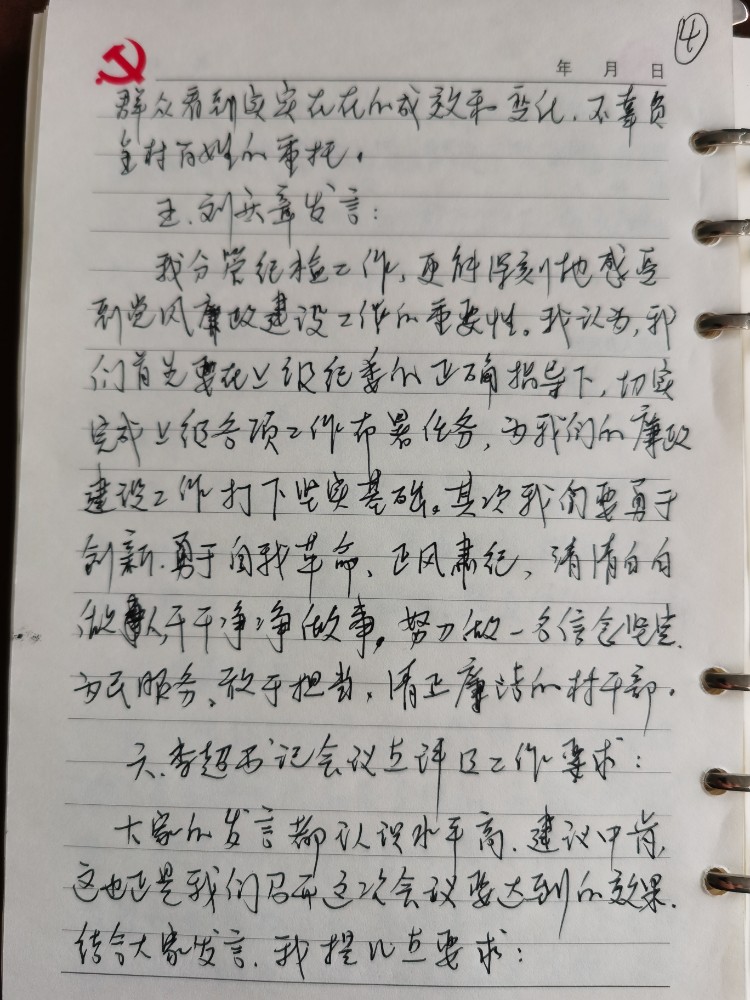 ④
年 月 日
群众看到实实在在的成效和变化、不辜负
全村百姓的重托。
五、刘庆章发言：
我分管纪检工作，更能深刻地感受
到党风廉政建设工作的重要性。我认为，我
们首先要在上级纪委的正确指导下，切实
完成上级各项工作布署任务，为我们的廉政
建设工作打下坚实基础。其次我们要勇于
创新、勇于自我革命、正风肃纪，清清白白
做人，干干净净做事。努力做一名信念坚定、
为民服务、敢于担当，清正廉洁的村干部。
六、李超书记会议点评及工作要求：
大家的发言都认识水平高、建议中肯，
这也正是我们召开这次会议要达到的效果。
结合大家发言、我提几点要求：